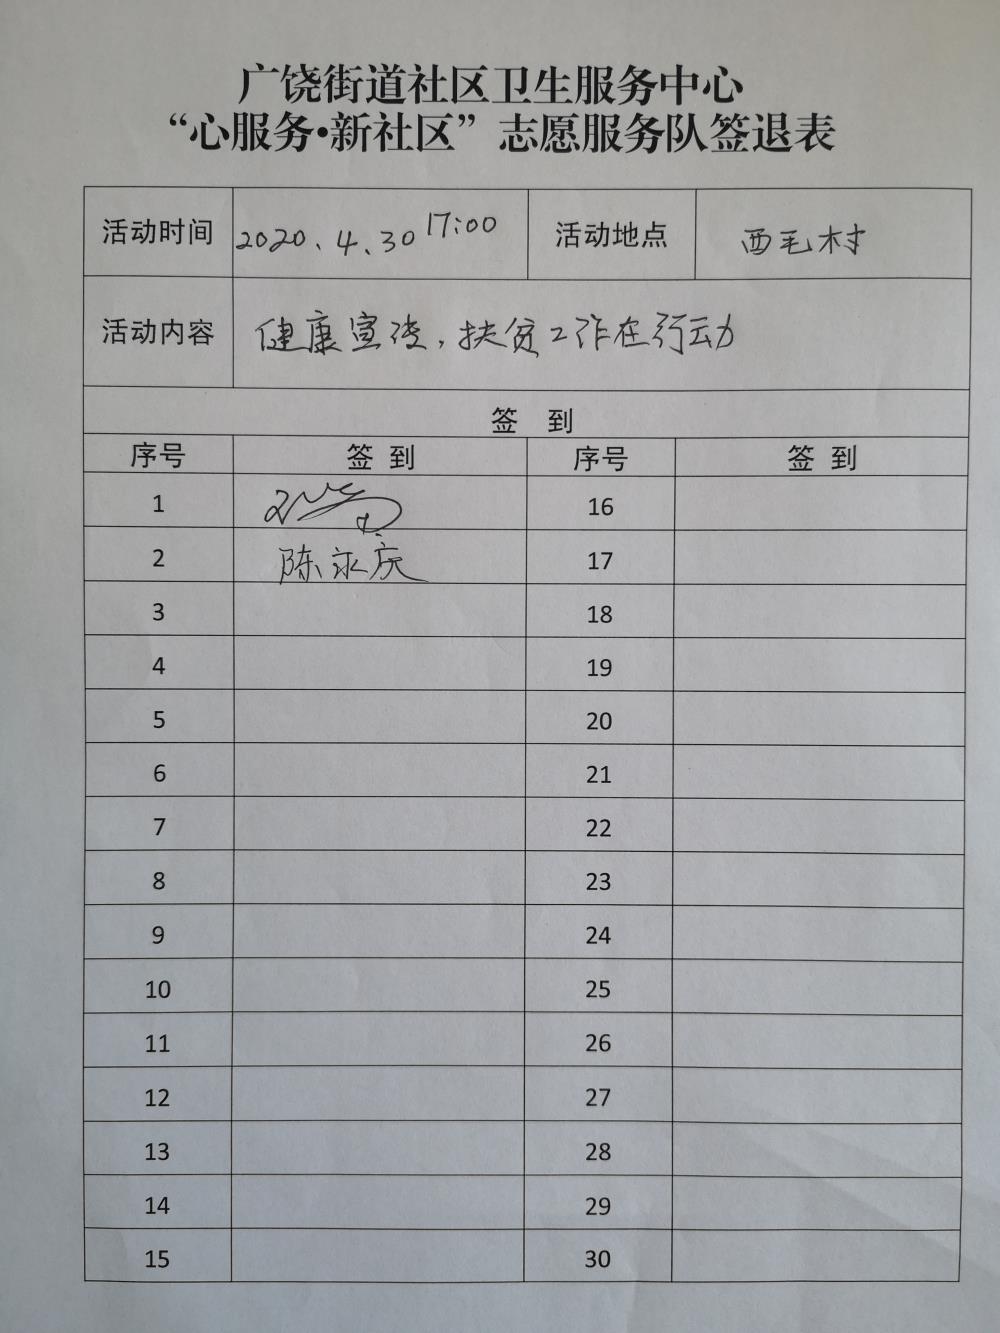 广饶街道社区卫生服务中心
“心服务•新社区”志愿服务队签退表
活动时间 2020.4.30 17:00 活动地点 西毛村
活动内容 健康宣传，扶贫工作在行动
签 到
序号 签 到 序号 签 到
1 16
2 陈永庆 17
3 18
4 19
5 20
6 21
7 22
8 23
9 24
10 25
11 26
12 27
13 28
14 29
15 30